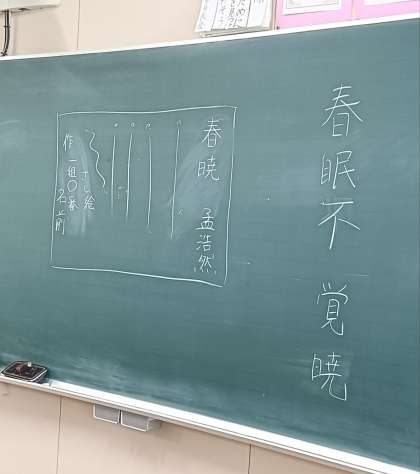 春眠不覚暁
春暁 孟浩然
さし絵
作 一組〇番 名前